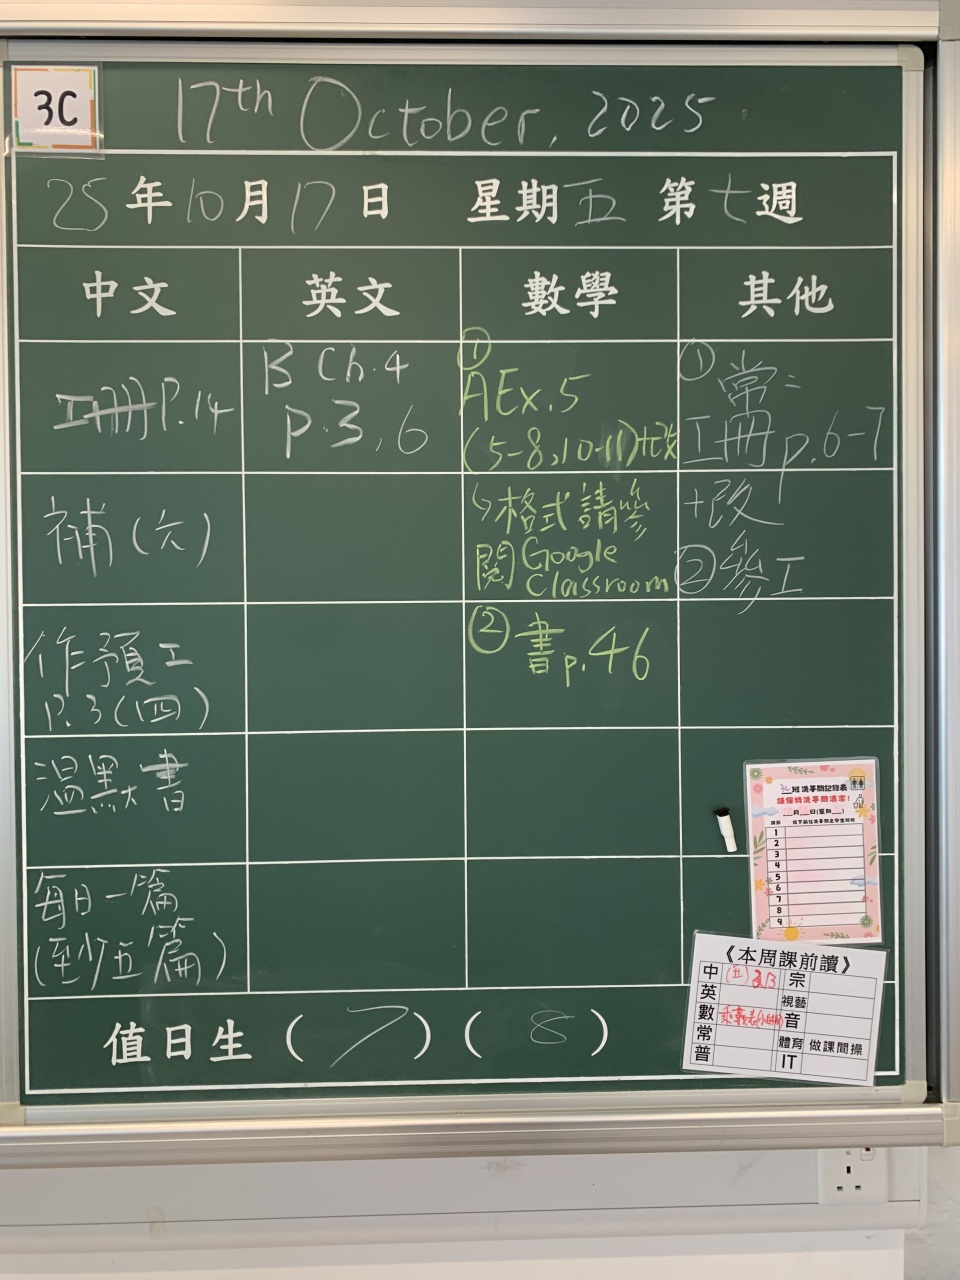 3C
17th October, 2025
25年10月17日 星期五 第七週
中文
英文
數學
其他
工冊P.14
補(六)
作預工
P.3(四)
溫默書
每日一篇
(至少五篇)
B Ch.4
p.3,6
①
AEx.5
(5-8,10-11)+改
↳格式請參
閱Google
Classroom
② 書p.46
①常:
工冊p.6-7
+改
②參工
3C班洗手間記錄表
請保持洗手間清潔!
月 日(星期 )
1
2
3
4
5
6
7
8
9
《本周課前讀》
中 (五) 宗
英 視藝
數 音
常 體育 做課間操
普 IT
值日生(7)(8)